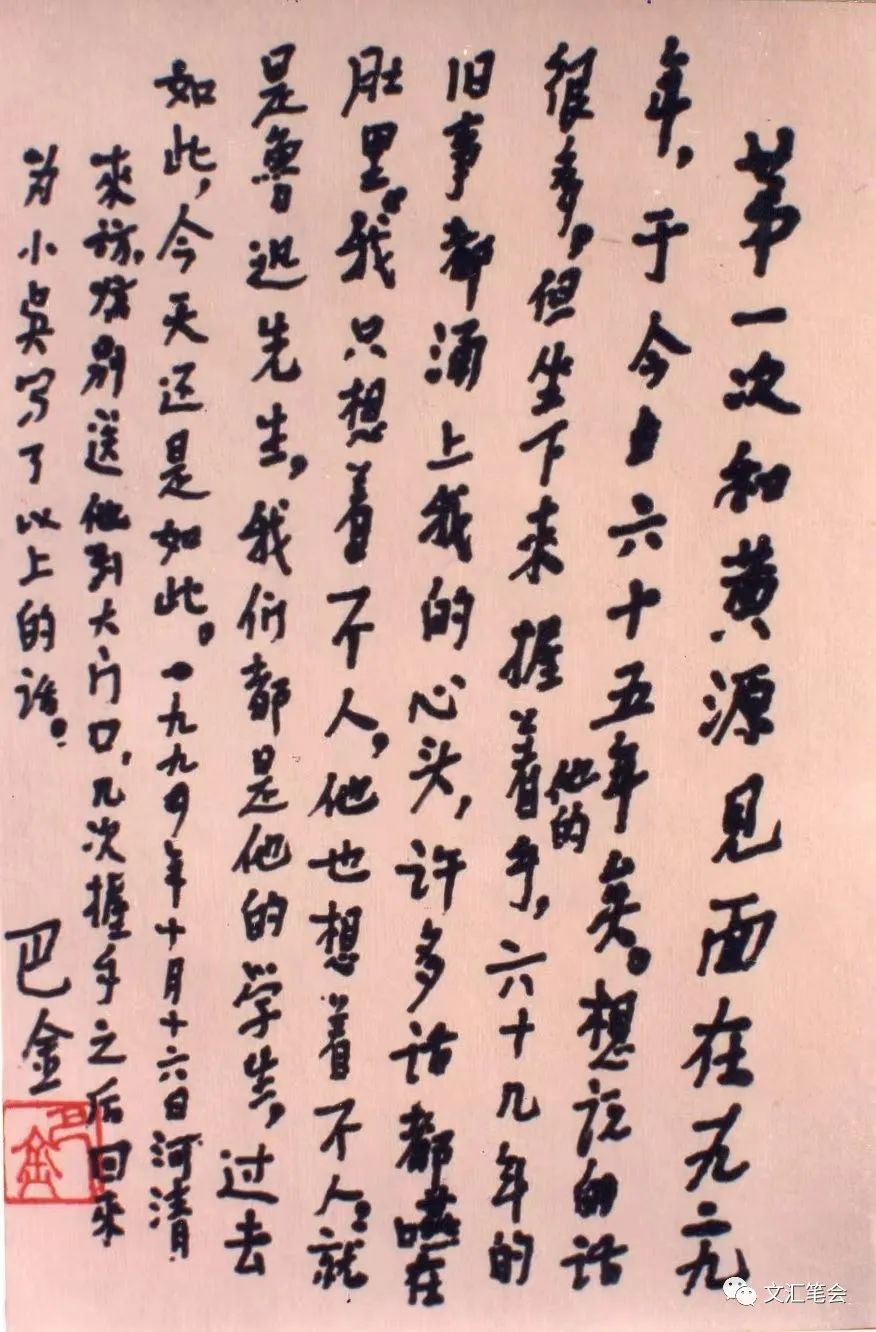 第一次和黄源见面在一九二九
年，于今六十五年矣。想说的话
很多，但坐下来握着他的手，六十几年的
旧事都涌上我的心头，许多话都咽在
肚里。我只想着一个人，他也想着一个人，就
是鲁迅先生，我们都是他的学生，过去
如此，今天还是如此。一九九四年十月十六日河清
来访，临别送他到大门口，几次握手之后回来
为小吴写了以上的话。
巴金
巴金
文汇笔会